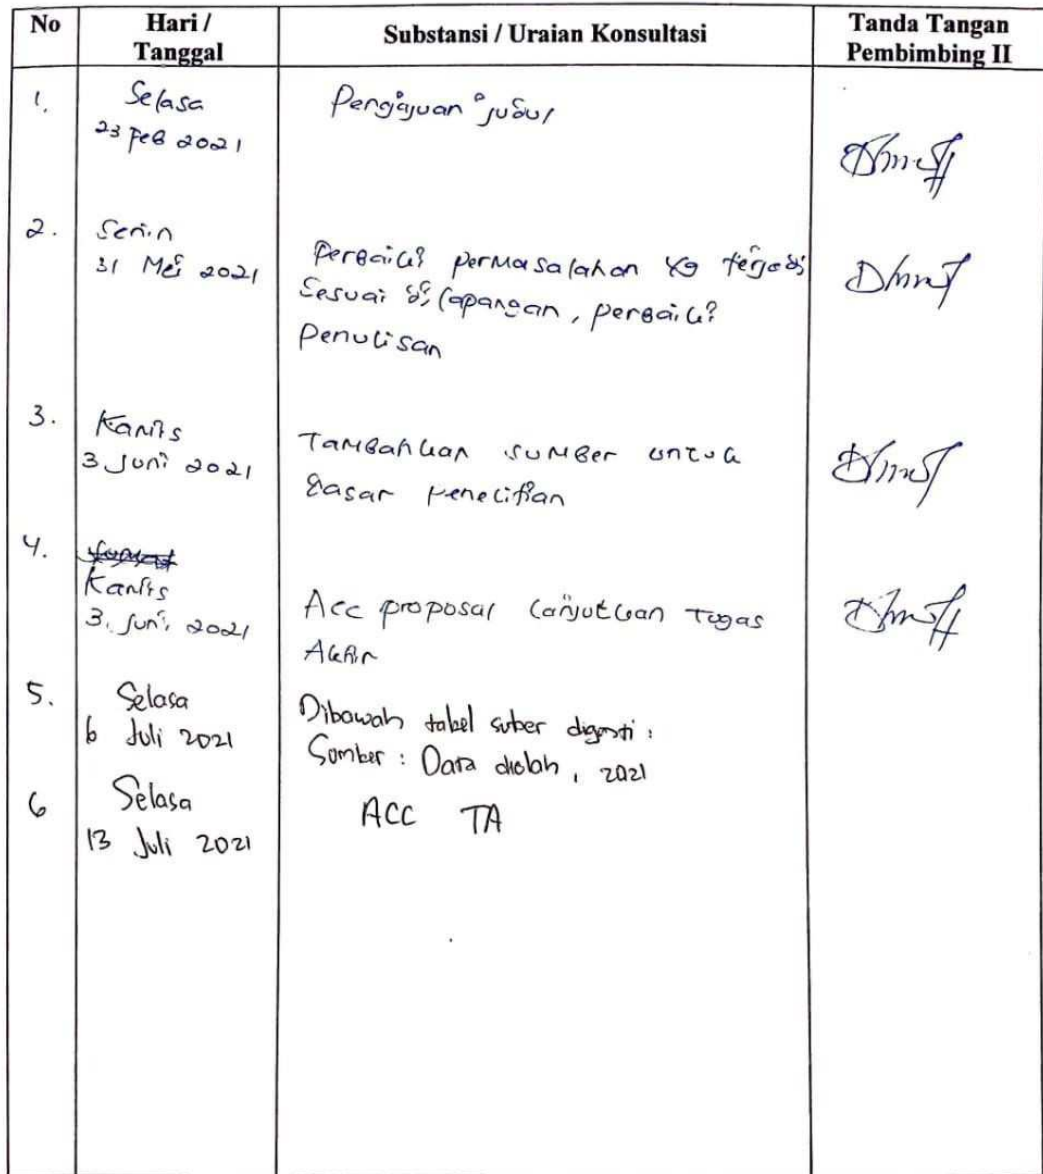 No Hari / Tanggal Substansi / Uraian Konsultasi Tanda Tangan Pembimbing II
1. Selasa Pengajuan judul
23 Feb 2021
2. Senin
31 Mei 2021 Perbaiki permasalahan yg terjadi
Sesuai di lapangan, perbaiki
Penulisan
3. Kamis
3 Juni 2021 Tambahkan sumber untuk
dasar penelitian
4.
Kamis
3 Juni 2021 Acc proposal lanjutkan Tugas
Akhir
5. Selasa Dibawah tabel suber diganti :
6 Juli 2021 Sumber : Data diolah, 2021
6 Selasa ACC TA
13 Juli 2021